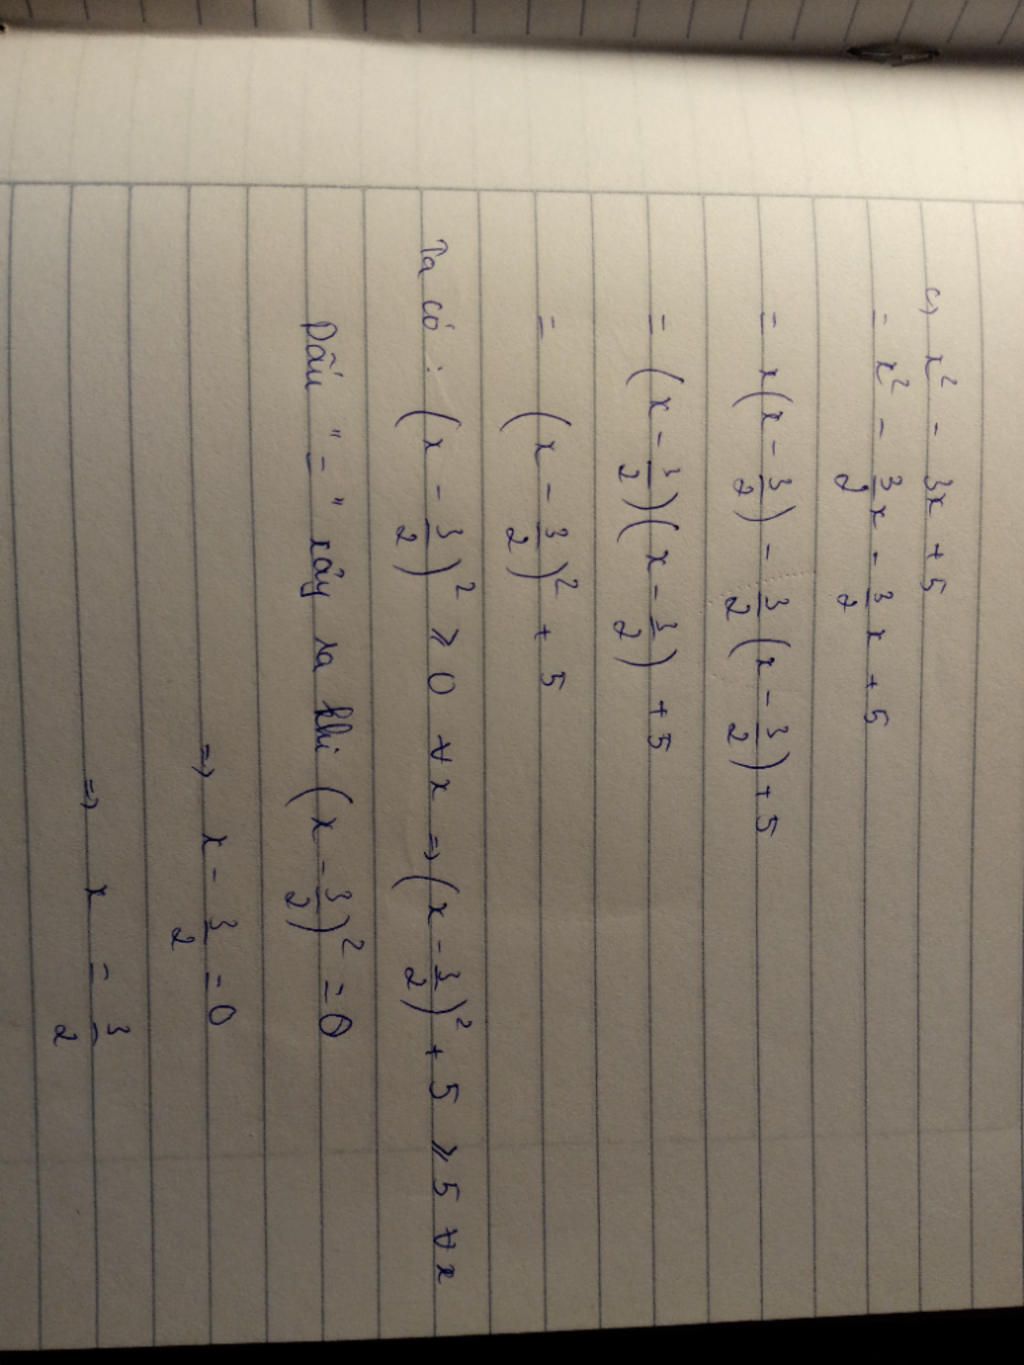 c) x² - 3x + 5
= x² - 3/2 x - 3/2 x + 5
= x(x - 3/2) - 3/2 (x - 3/2) + 5
= (x - 3/2)(x - 3/2) + 5
= (x - 3/2)² + 5
Ta có : (x - 3/2)² ⩾ 0 ∀x => (x - 3/2)² + 5 ⩾ 5 ∀x
Dấu " = " xảy ra khi (x - 3/2)² = 0
=> x - 3/2 = 0
=> x = 3/2